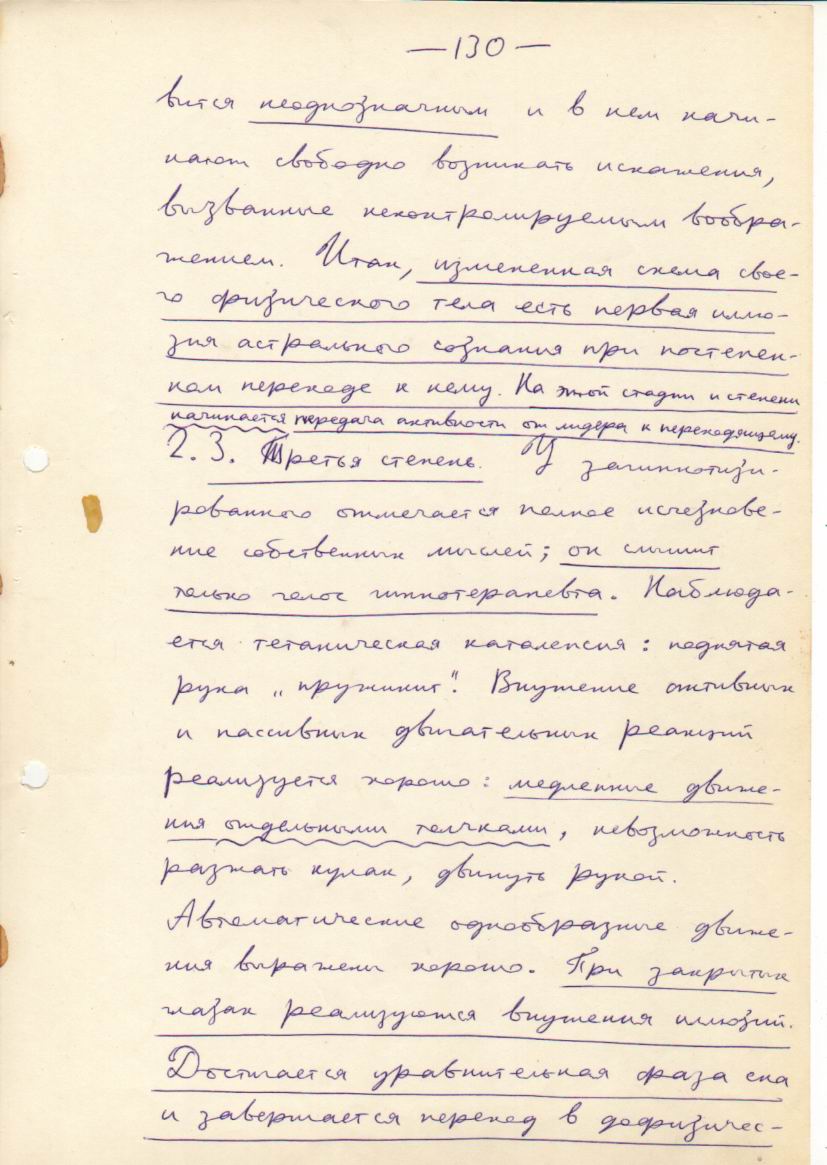 —130—
вится неоднозначным и в нем начи-
нают свободно возникать искажения,
вызванные неконтролируемым вообра-
жением. Итак, измененная схема свое-
го физического тела есть первая иллю-
зия астрального сознания при постепен-
ном переходе к нему. На этой стадии и степени
начинается передача активности от лидера к переходящему.
2.3. Третья степень. У загипнотизи-
рованного отмечается полное исчезнове-
ние собственных мыслей; он слышит
только голос гипнотерапевта. Наблюда-
ется тетаническая каталепсия: поднятая
рука „пружинит". Внушение активных
и пассивных двигательных реакций
реализуется хорошо: медленные движе-
ния отдельными толчками, невозможность
разжать кулак, двинуть рукой.
Автоматические однообразные движе-
ния выражены хорошо. При закрытых
глазах реализуются внушения иллюзий.
Достигается уравнительная фаза сна
и завершается переход в дофизичес-